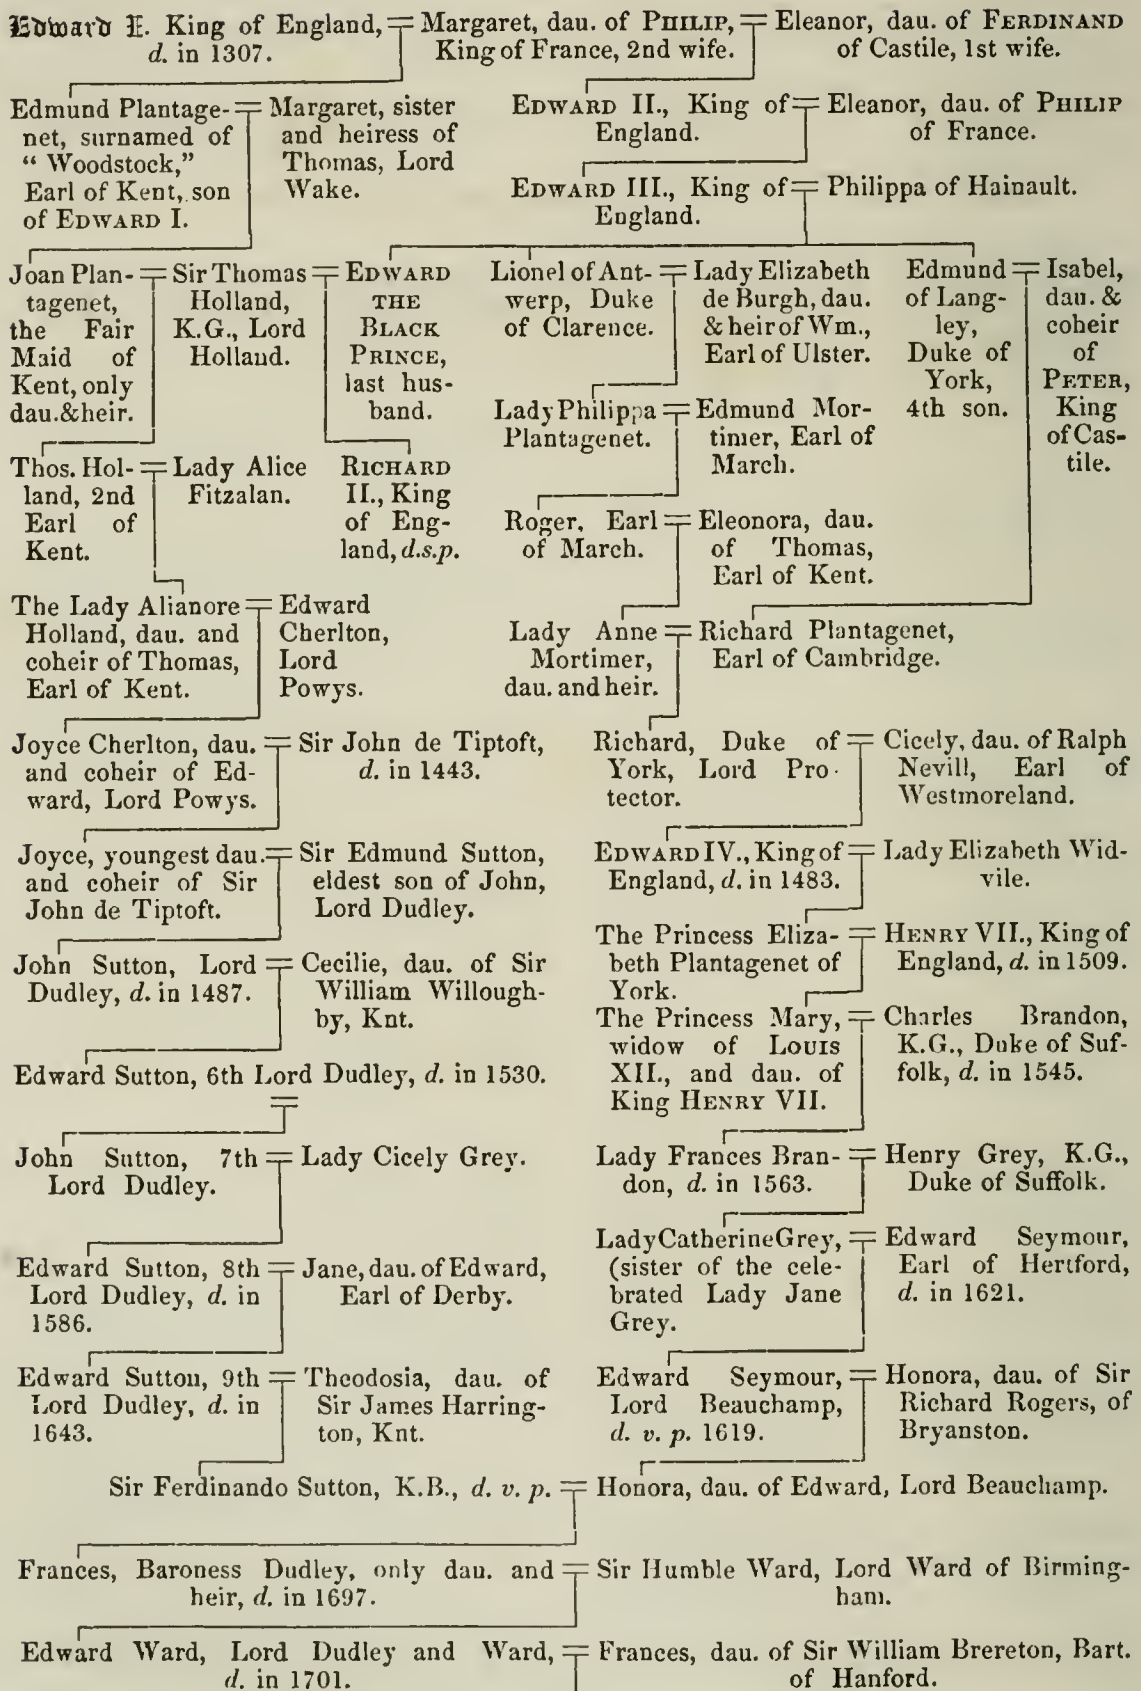 Edward I. King of England,
d. in 1307.
Margaret, dau. of PHILIP,
King of France, 2nd wife.
Eleanor, dau. of FERDINAND
of Castile, 1st wife.
Edmund Plantage-
net, surnamed of
“ Woodstock,”
Earl of Kent, son
of EDWARD I.
Margaret, sister
and heiress of
Thomas, Lord
Wake.
EDWARD II., King of
England.
Eleanor, dau. of PHILIP
of France.
EDWARD III., King of
England.
Philippa of Hainault.
Joan Plan-
tagenet,
the Fair
Maid of
Kent, only
dau.&heir.
Sir Thomas
Holland,
K.G., Lord
Holland.
EDWARD
THE
BLACK
PRINCE,
last hus-
band.
Lionel of Ant-
werp, Duke
of Clarence.
Lady Elizabeth
de Burgh, dau.
& heir of Wm.,
Earl of Ulster.
Edmund
of Lang-
ley,
Duke of
York,
4th son.
Isabel,
dau. &
coheir
of
PETER,
King
of Cas-
tile.
Lady Philippa
Plantagenet.
Edmund Mor-
timer, Earl of
March.
Thos. Hol-
land, 2nd
Earl of
Kent.
Lady Alice
Fitzalan.
RICHARD
II., King
of Eng-
land, d.s.p.
Roger, Earl
of March.
Eleonora, dau.
of Thomas,
Earl of Kent.
The Lady Alianore
Holland, dau. and
coheir of Thomas,
Earl of Kent.
Edward
Cherlton,
Lord
Powys.
Lady Anne
Mortimer,
dau. and heir.
Richard Plantagenet,
Earl of Cambridge.
Joyce Cherlton, dau.
and coheir of Ed-
ward, Lord Powys.
Sir John de Tiptoft,
d. in 1443.
Richard, Duke of
York, Lord Pro-
tector.
Cicely, dau. of Ralph
Nevill, Earl of
Westmoreland.
Joyce, youngest dau.
and coheir of Sir
John de Tiptoft.
Sir Edmund Sutton,
eldest son of John,
Lord Dudley.
EDWARD IV., King of
England, d. in 1483.
Lady Elizabeth Wid-
vile.
John Sutton, Lord
Dudley, d. in 1487.
Cecilie, dau. of Sir
William Willough-
by, Knt.
The Princess Eliza-
beth Plantagenet of
York.
HENRY VII., King of
England, d. in 1509.
The Princess Mary,
widow of LOUIS
XII., and dau. of
King HENRY VII.
Charles Brandon,
K.G., Duke of Suf-
folk, d. in 1545.
Edward Sutton, 6th Lord Dudley, d. in 1530.
John Sutton, 7th
Lord Dudley.
Lady Cicely Grey.
Lady Frances Bran-
don, d. in 1563.
Henry Grey, K.G.,
Duke of Suffolk.
Lady Catherine Grey,
(sister of the cele-
brated Lady Jane
Grey.
Edward Seymour,
Earl of Hertford,
d. in 1621.
Edward Sutton, 8th
Lord Dudley, d. in
1586.
Jane, dau. of Edward,
Earl of Derby.
Edward Sutton, 9th
Lord Dudley, d. in
1643.
Theodosia, dau. of
Sir James Harring-
ton, Knt.
Edward Seymour,
Lord Beauchamp,
d. v. p. 1619.
Honora, dau. of Sir
Richard Rogers, of
Bryanston.
Sir Ferdinando Sutton, K.B., d. v. p.
Honora, dau. of Edward, Lord Beauchamp.
Frances, Baroness Dudley, only dau. and
heir, d. in 1697.
Sir Humble Ward, Lord Ward of Birming-
ham.
Edward Ward, Lord Dudley and Ward,
d. in 1701.
Frances, dau. of Sir William Brereton, Bart.
of Hanford.